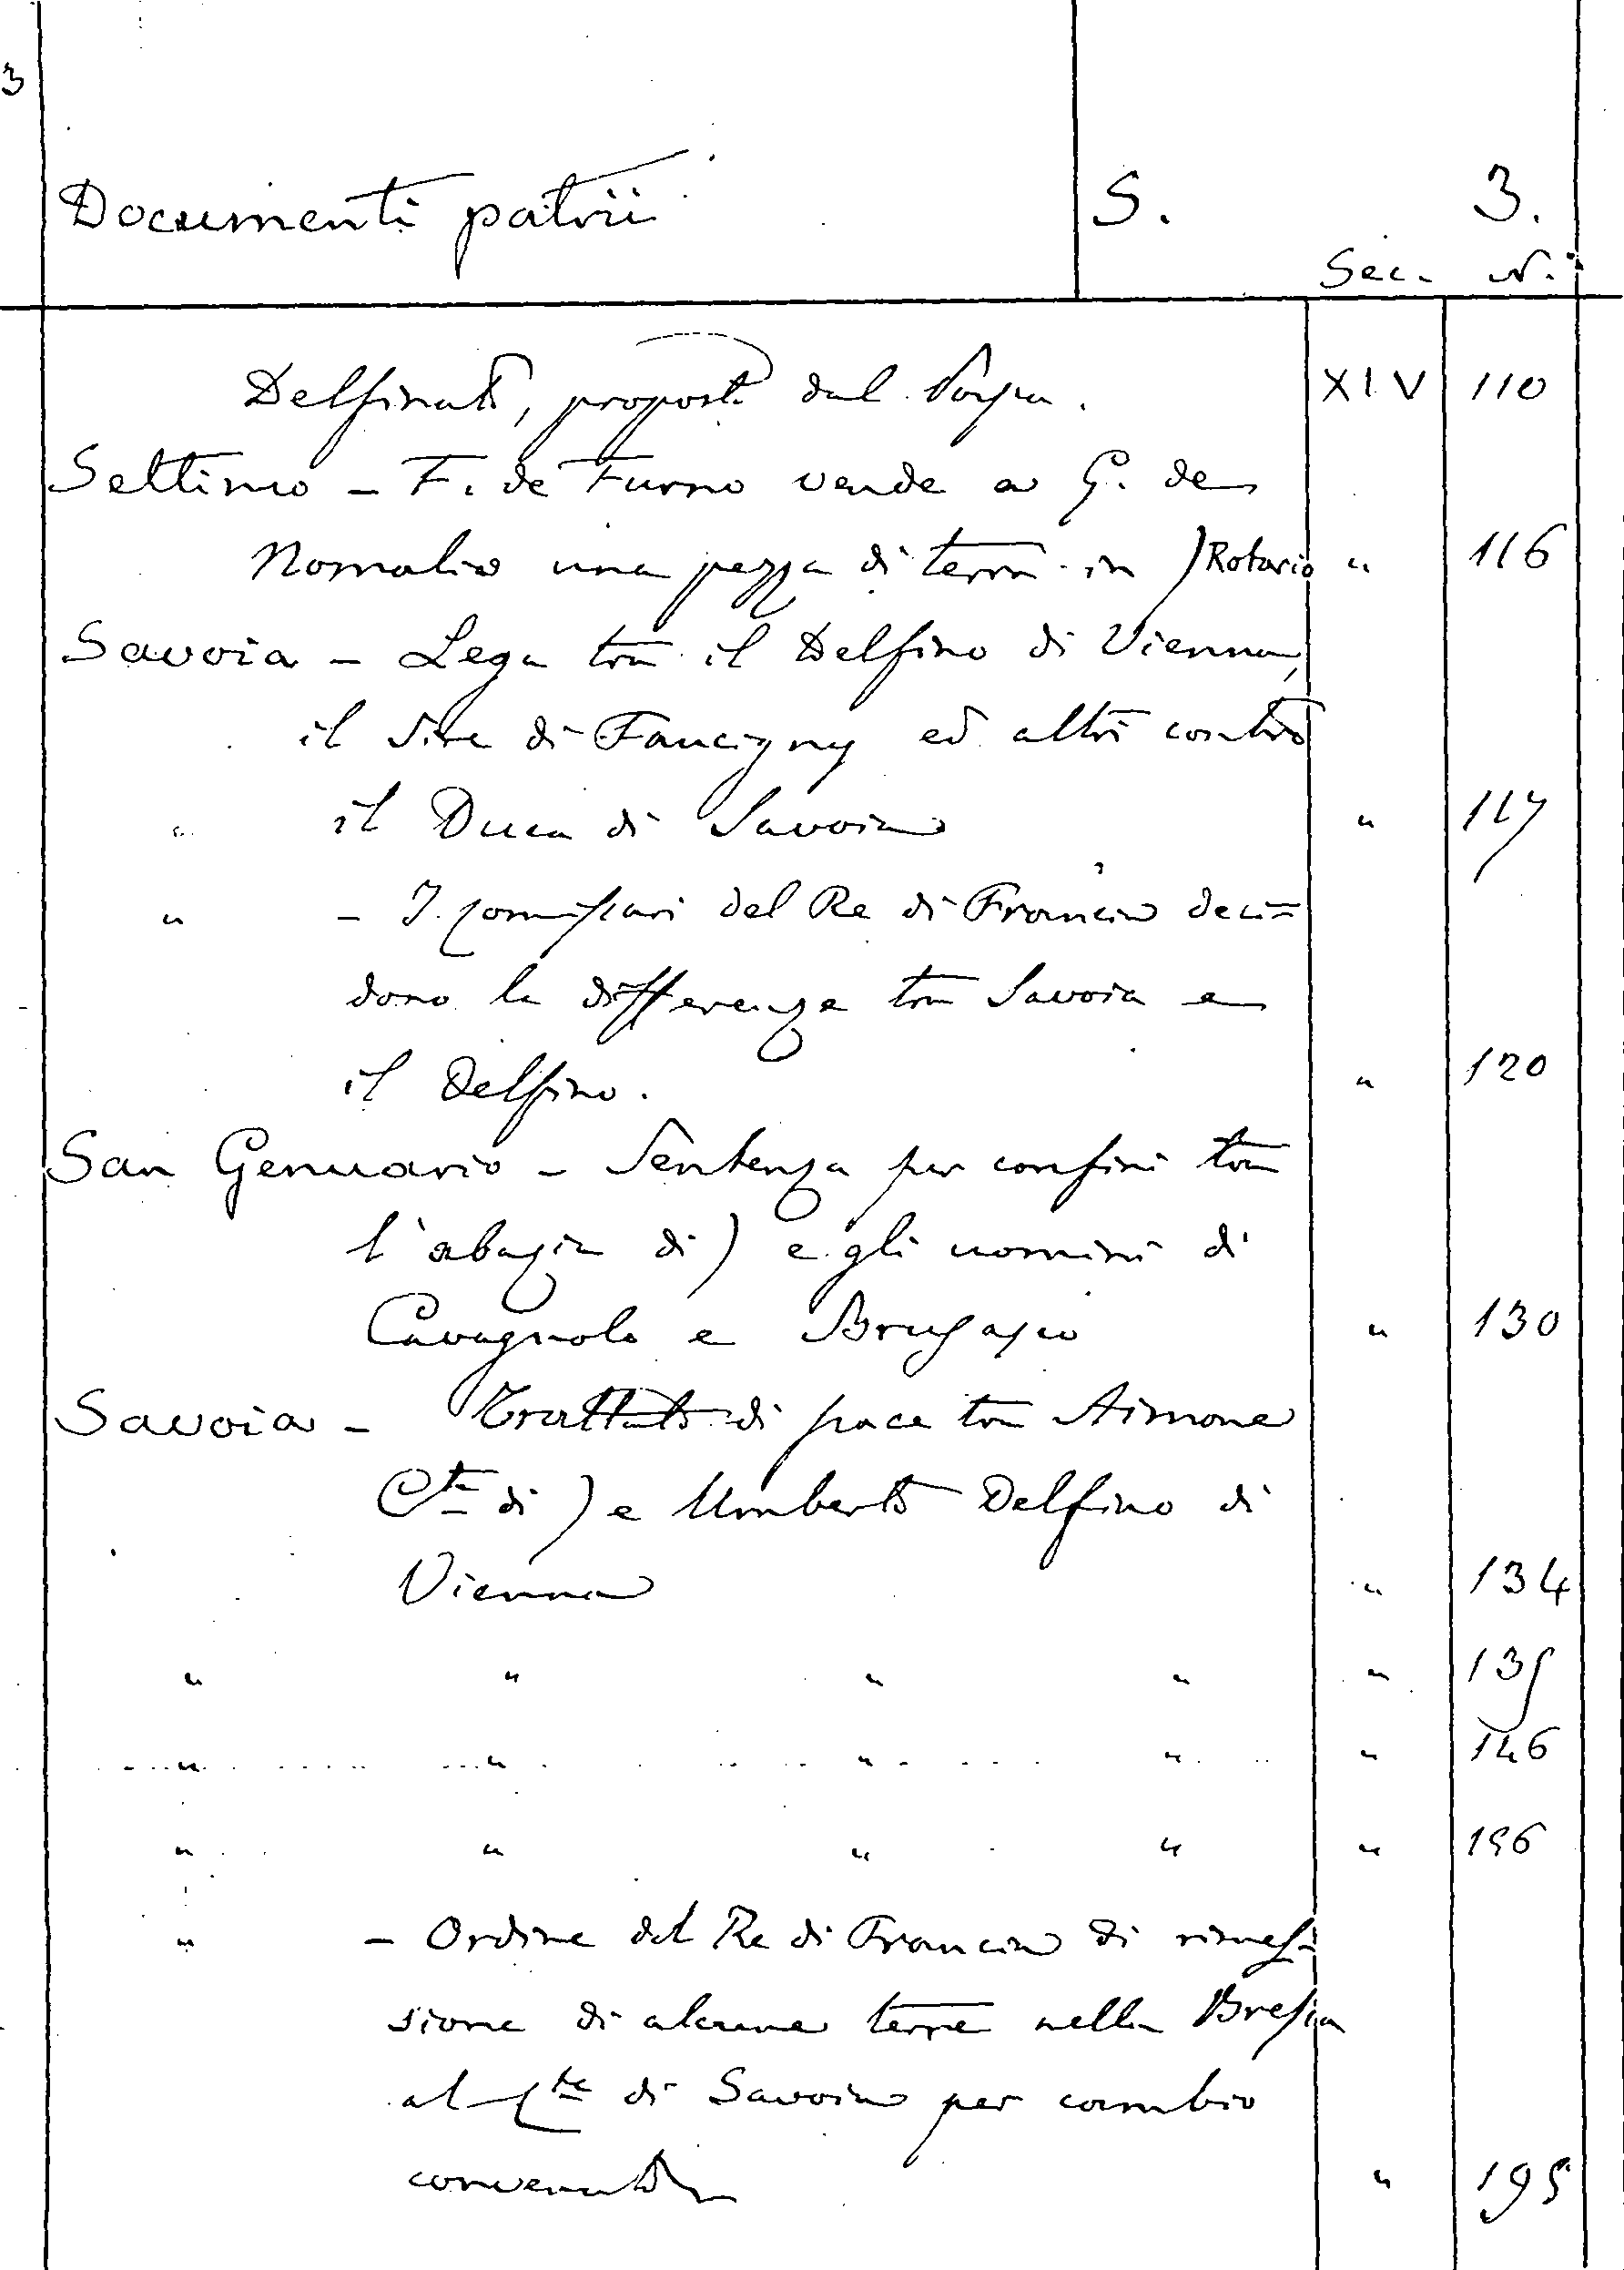 3
Documenti patrii S. 3.
Sec. N.°
Delfinato, proposta dal Papa. XIV 110
Settimo - F. de Furno vende a G. de
Nomalio una pezza di terra in ) Rotario " 116
Savoia - Lega tra il Delfino di Vienna,
il Sire di Faucigny ed altri contro
" il Duca di Savoia " 117
" - I Commissari del Re di Francia deci=
dono le differenze tra Savoia e
il Delfino. " 120
San Genuario - Sentenza per confini tra
l'abazia di ) e gli uomini di
Cavagnolo e Brusasco " 130
Savoia - Trattato di pace tra Aimone
Cte di ) e Umberto Delfino di
Vienna " 134
" " " " " 135
" " " " " 146
" " " " " 156
" - Ordine del Re di Francia di rimes-
sione di alcune terre nella Bressa
al Cte di Savoia per cambio
convenuto " 195